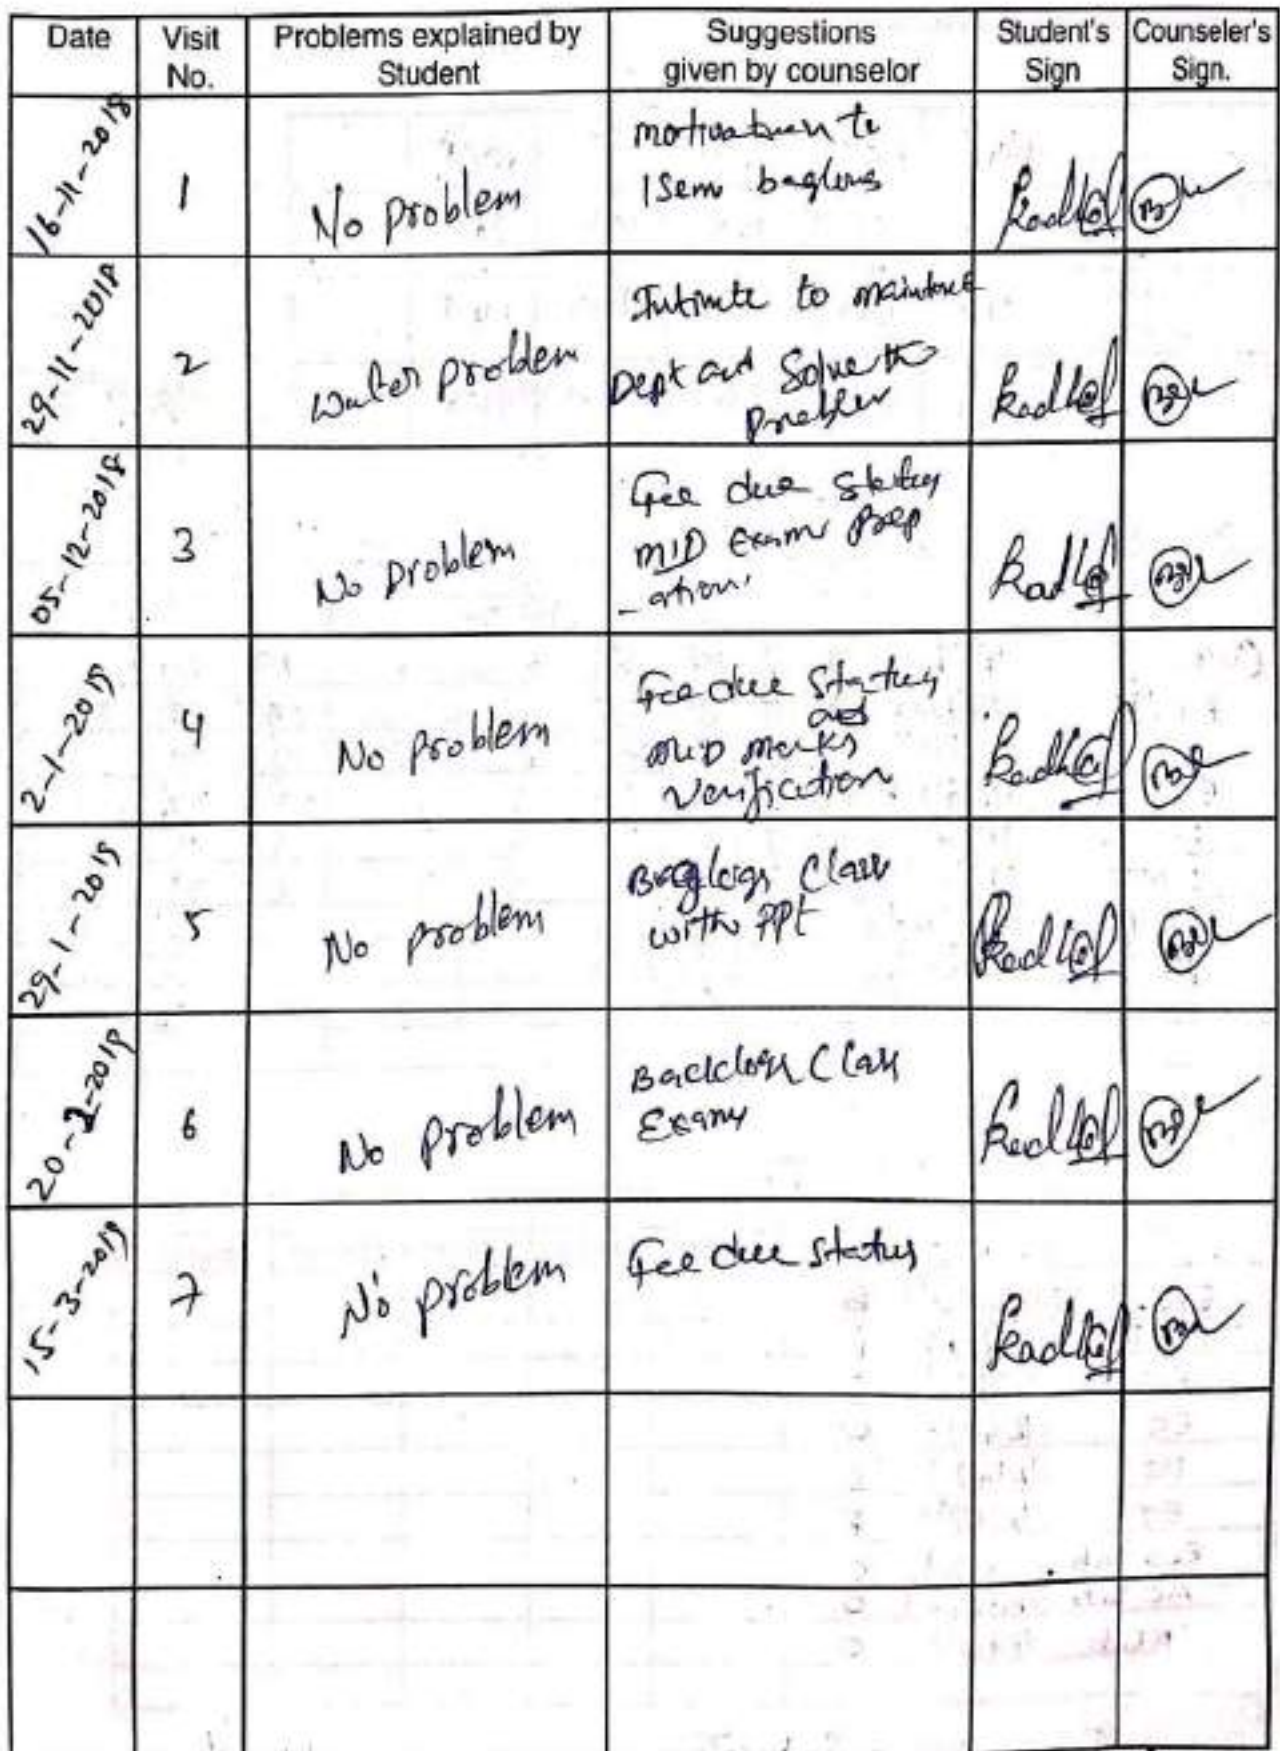 Date Visit No. Problems explained by Student Suggestions given by counselor Student's Sign Counseler's Sign.
16-11-2018 1 No problem motivation to
1 Sem baglogs
29-11-2018 2 Water problem Intimate to
Dept and Solve the
problem
05-12-2018 3 No problem Fee due status
MID Exam Prep
-ation.
2-1-2019 4 No problem Fee due status
and
MID marks
Verification
29-1-2019 5 No problem Baglogs Class
with PPt
20-2-2019 6 No problem Backlogs Class
Exams
15-3-2019 7 No problem Fee due status